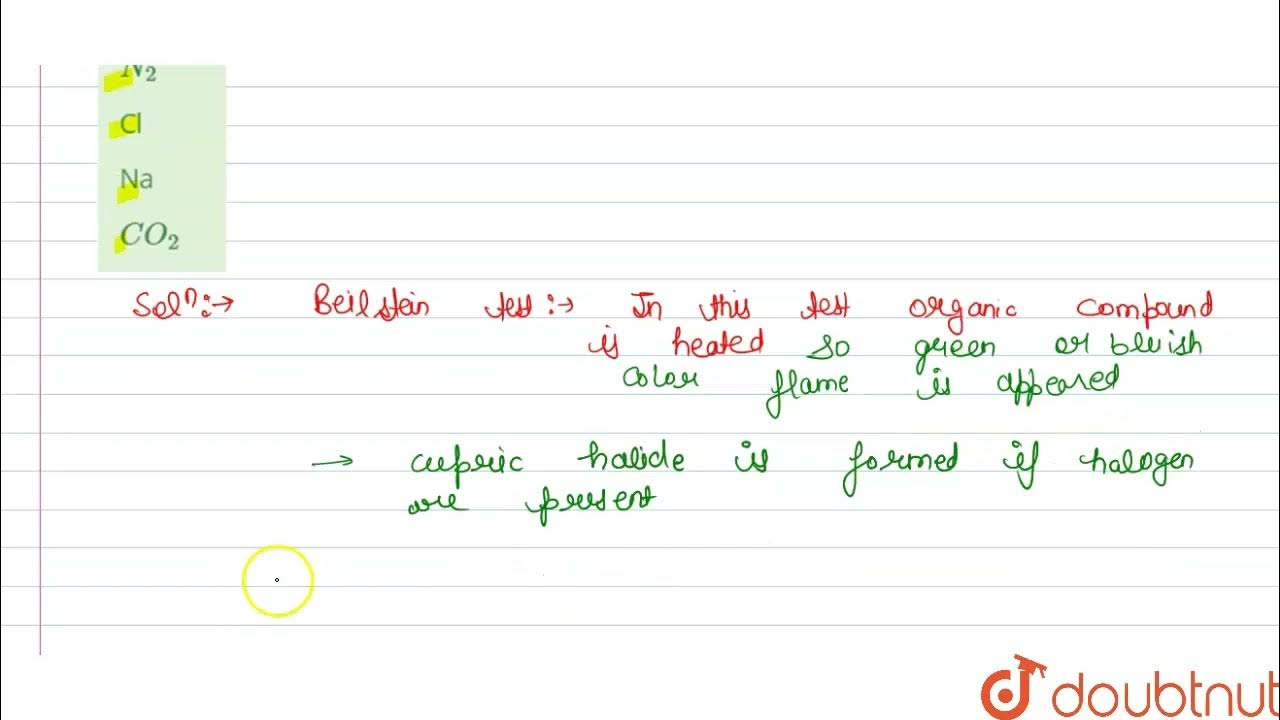 N₂
Cl
Na
CO₂
Solⁿ:→ Beilstein test:→ In this test organic compound
is heated so green or bluish
color flame is appeared
→ cupric halide is formed if halogen
are present
doubtnut